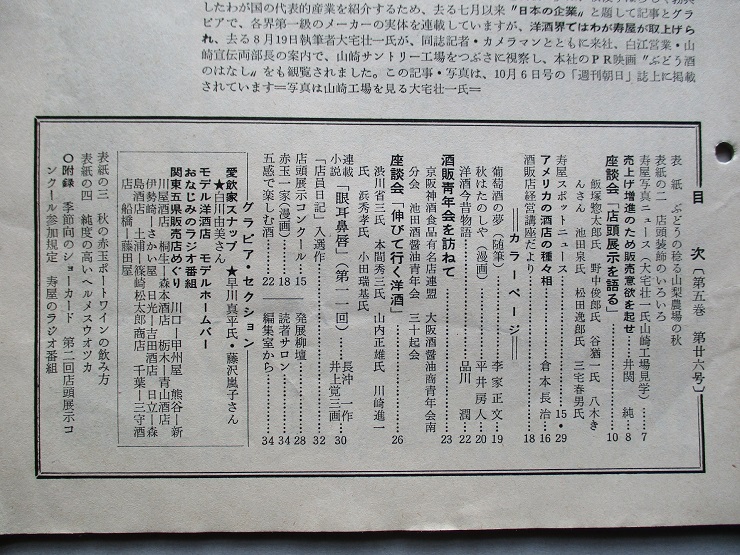 した我が国の代表的産業を紹介するため、去る七月以来"日本の企業〟と題して記事とグラ
ビアで、各界第一級のメーカーの実体を連載していますが、洋酒界ではわが寿屋が取上げら
れ、去る8月19日執筆者大宅壮一氏が、同誌記者・カメラマンとともに来社、白江営業・山
崎宣伝両部長の案内で、山崎サントリー工場をつぶさに視察し、本社のPR映画〝ぶどう酒
のはなし〟をも観覧されました。この記事・写真は、10月6日号の「週刊朝日」誌上に掲載
されています=写真は山崎工場を見る大宅壮一氏=
目 次〔第五巻 第廿六号〕
表紙 ぶどうの稔る山梨農場の秋
表紙の二 店頭装飾のいろいろ
寿屋写真ニュース(大宅壮一氏山崎工場見学)…7
売上げ増進のため販売意欲を起せ…井関 純…8
座談会「店頭展示を語る」…10
飯塚惣太郎氏 野中俊郎氏 谷猶一氏 八木き
んさん 池田泉氏 松田逸郎氏 三宅春男氏
寿屋スポットニュース…15・29
アメリカの酒店の種々相…倉本長治…16
酒販店経営講座だより…18
=カラーページ=
葡萄酒の夢(随筆)…李家正文…19
秋はたのしや(漫画)…平井房人…20
洋酒今昔物語…品川 潤…22
酒販青年会を訪ねて…23
京阪神酒食品有名店連盟 大阪酒醤油商青年会南
分会 池田酒醤油青年会 三十起会
座談会「伸びて行く洋酒」…26
渋川省三氏 本間秀三氏 山内正雄氏 川崎進一
氏 浜秀孝氏 小田瑞基氏
連載小説「眼耳鼻唇」(第一一回)…長沖 一作 井上覚三画…30
「店員日記」入選作…32
店頭展示コンクール…15 発展柳壇…28
赤玉一家(漫画)…18 読者サロン…34
五感で楽しむ酒…22 編集室から…34
グラビア・セクション
愛飲家スナップ ★早川真平氏・藤沢嵐子さん
★白川由美さん
モデル洋酒店 モデルホームバー
おなじみのラジオ番組
関東五県販売店めぐり 川口―甲州屋 熊谷―新
川屋酒店 桐生―森本酒店 栃木―青山酒店
伊勢崎―さかい屋 日光―吉田酒店 日立―森
島酒店 土浦―篠崎松太郎商店 千葉―三守酒
店 船橋―藤田屋
表紙の三 秋の赤玉ポートワインの飲み方
表紙の四 純度の高いヘルメスウオツカ
○附録 季節向のショーカード 第二回店頭展示コ
ンクール参加規定 寿屋のラジオ番組